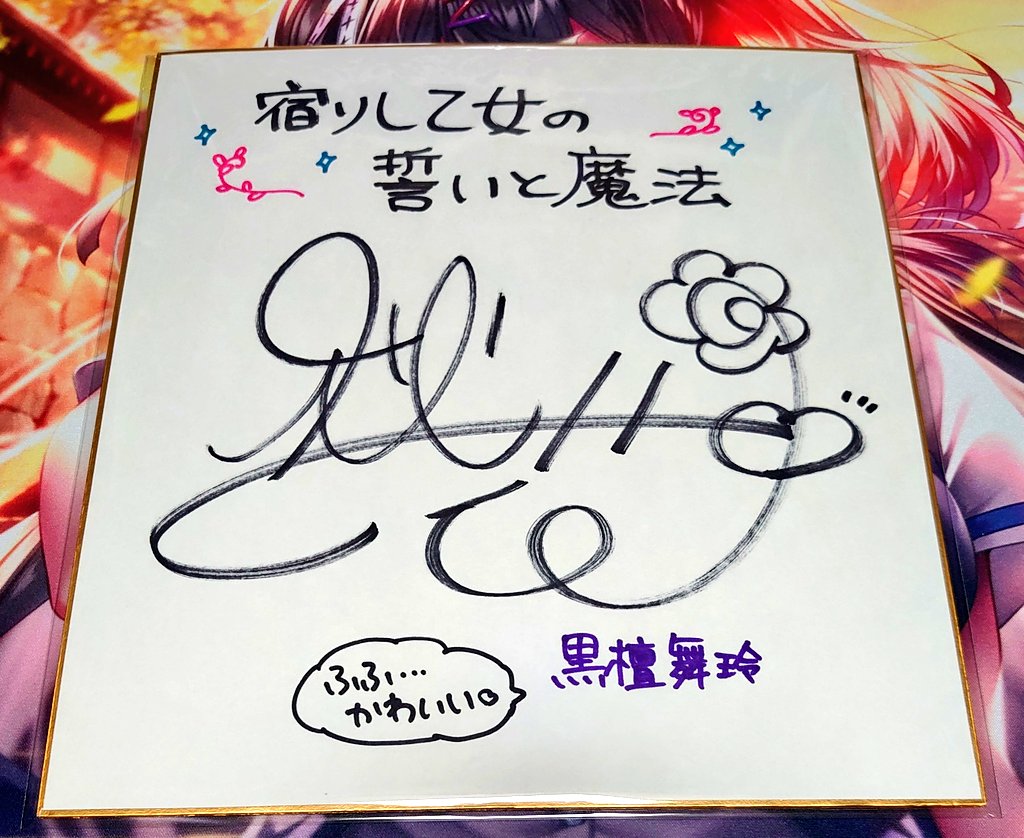 宿りし乙女の
誓いと魔法
黒檀舞玲
ふふ…
かわいい♡